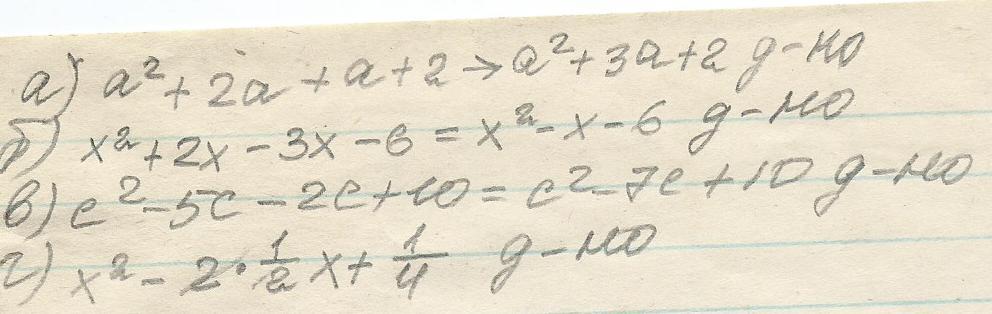 а) a² + 2a + a + 2 → a² + 3a + 2 д-но
б) x² + 2x - 3x - 6 = x² - x - 6 д-но
в) c² - 5c - 2c + 10 = c² - 7c + 10 д-но
г) x² - 2 · 1/2 x + 1/4 д-но